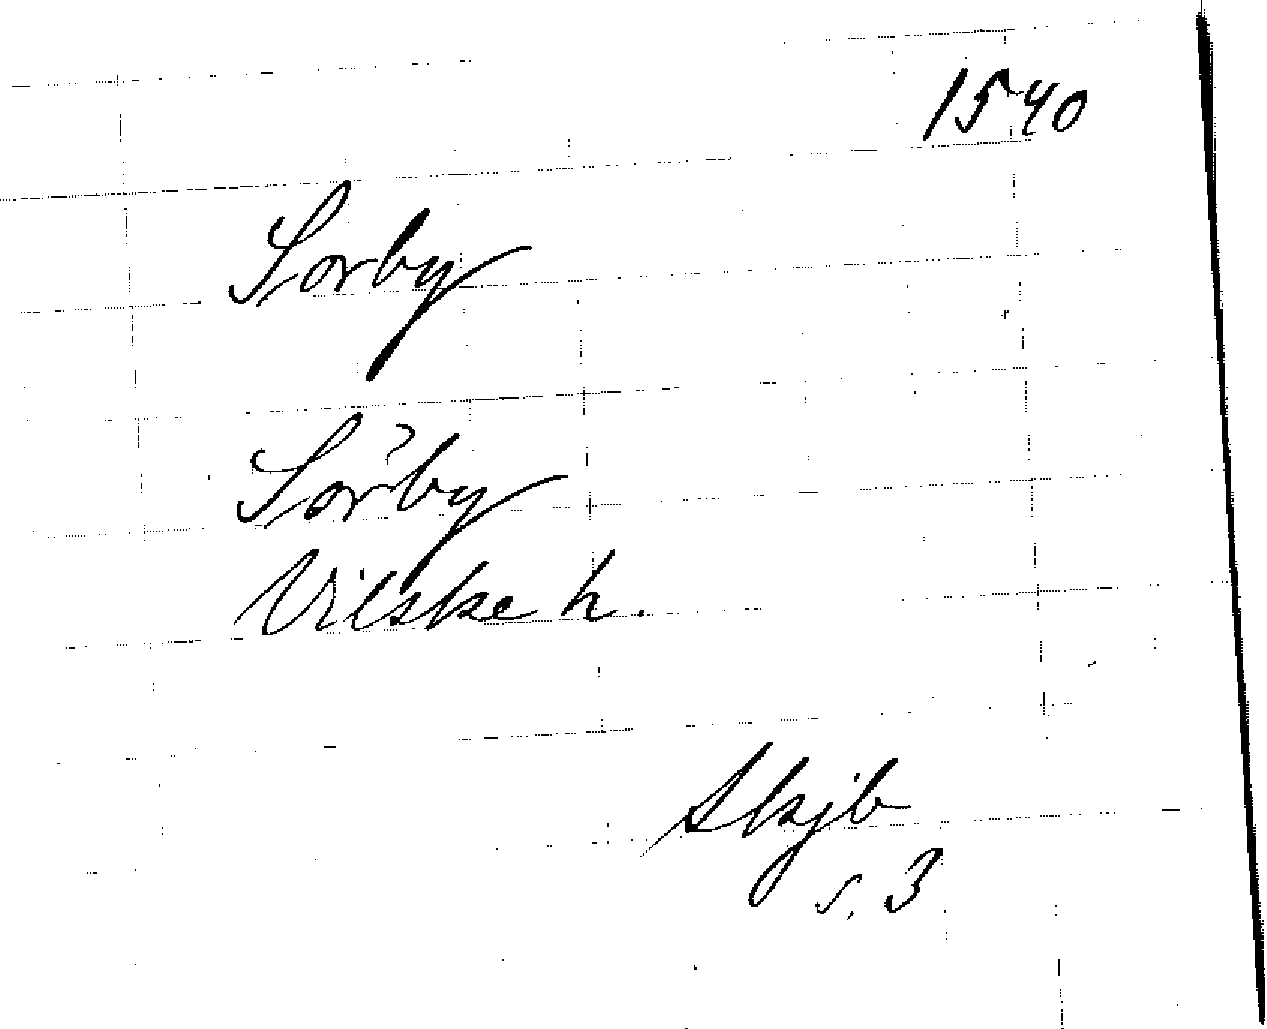 1540
Sorby
Sörby
Vilske h.
Skjb
s. 3